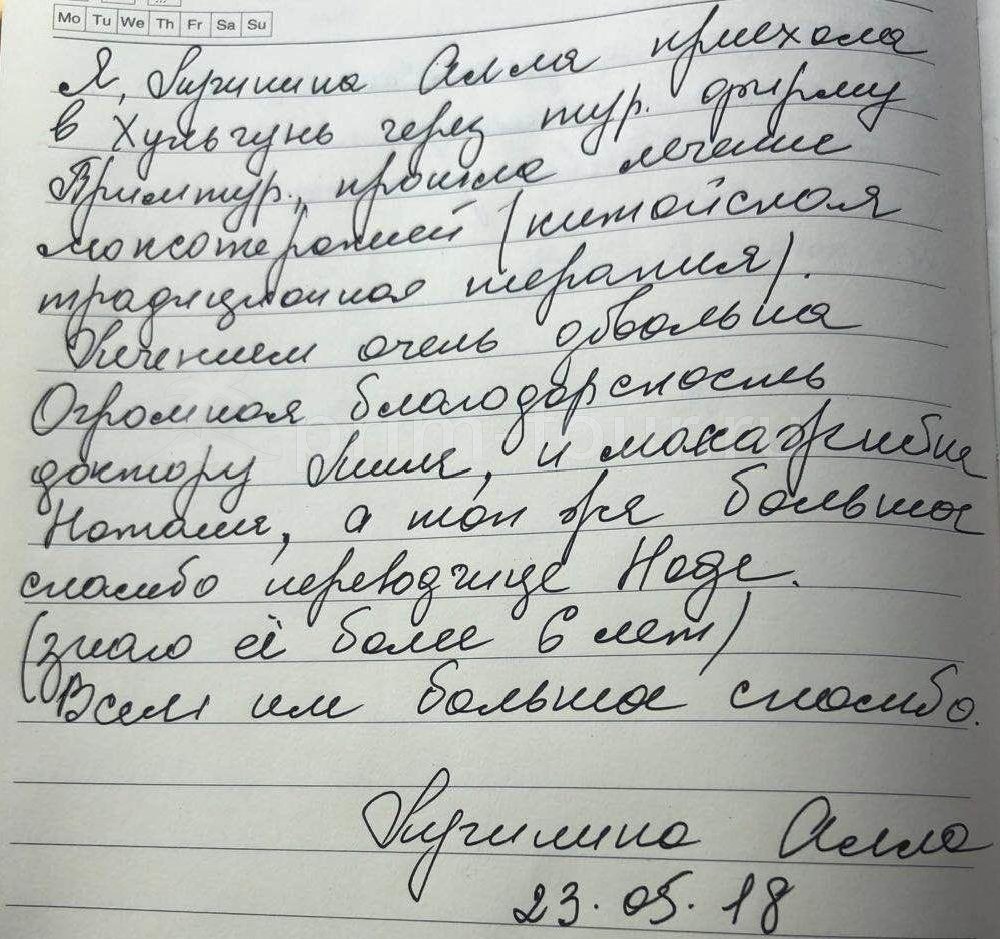 Mo Tu We Th Fr Sa Su
Я, Лучинина Алла приехала
в Хульчунь через тур. фирму
Примтур., прошла лечение
моксотерапией (китайская
традиционная терапия).
Лечением очень довольна
Огромная благодарность
доктору Лиля, и манаджибне
Наталия, а так же большое
спасибо переводчице Наде.
(знаю её более 6 лет)
Всем им большое спасибо.
Лучинина Алла
23.05.18
prim-tour.ru